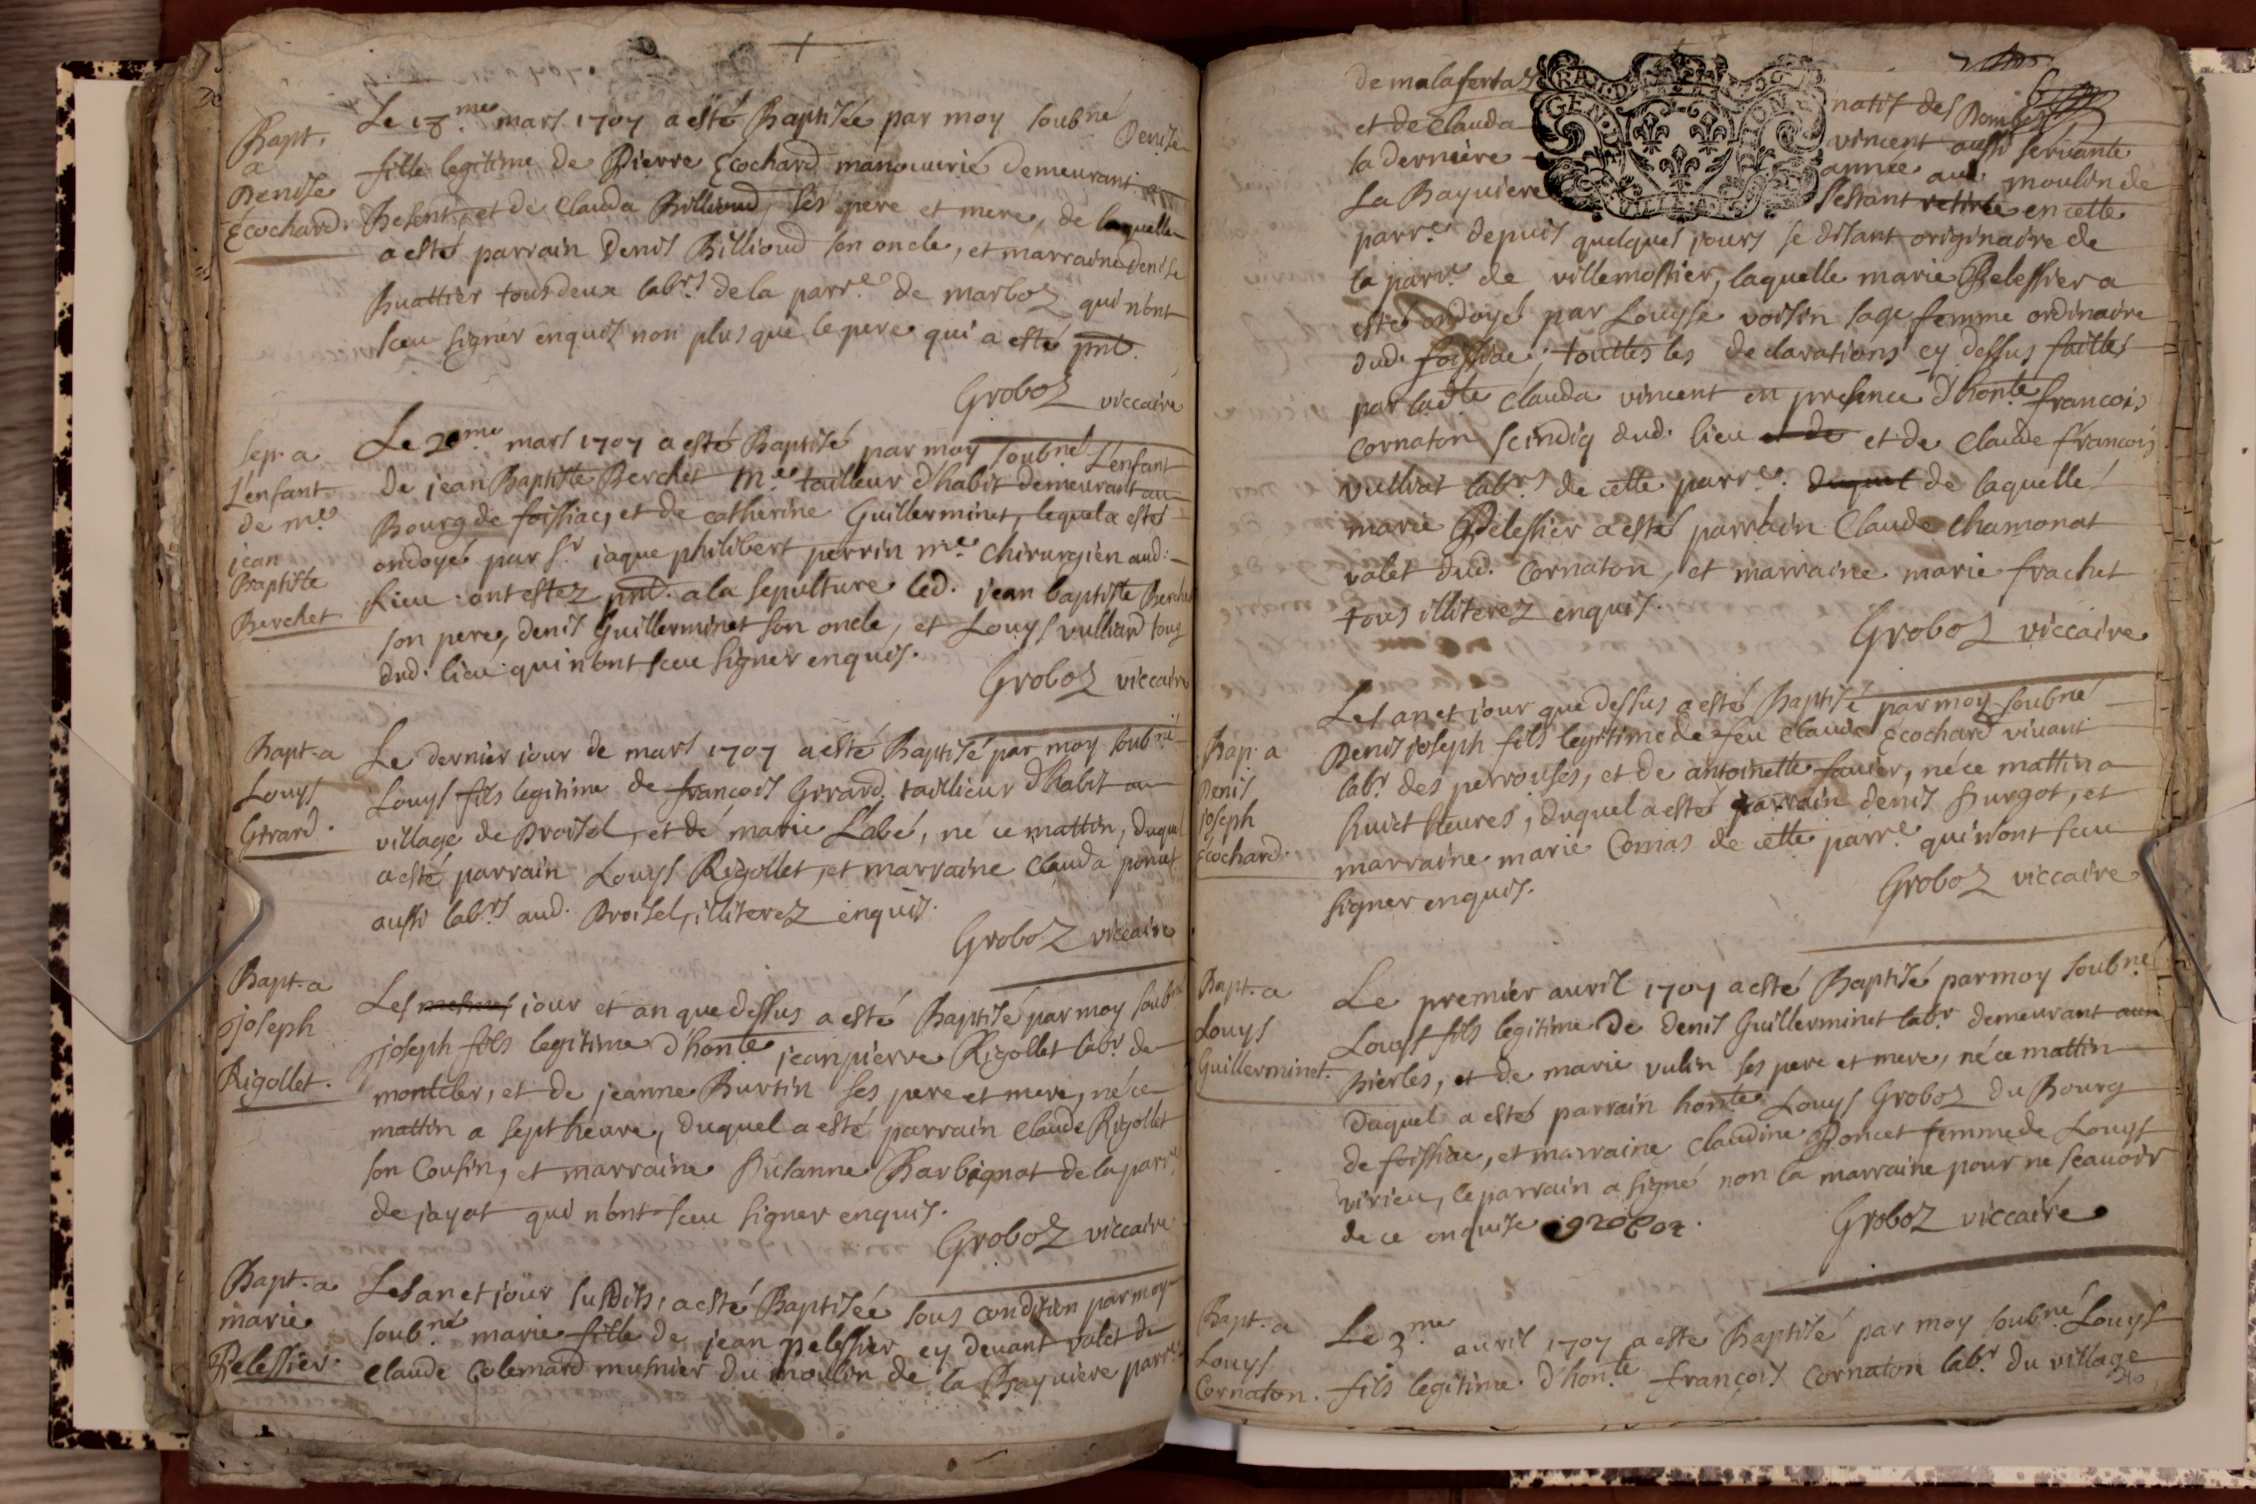 Bapt.
a
Denise
Ecochard.
Le 18.me mars 1707 a esté Baptisée par moy soubné Denise
fille legitime de Pierre Ecochard manouvrié demeurant
Besent, et de Clauda Billioud ses pere et mere, de laquelle
a esté parrain Denis Billioud son oncle, et marraine Denise
Buattier tous deux labrs de la parre de marboz qui n'ont
sceu signer enquis non plus que le pere qui a esté pnt.
Groboz viccaire
Sep. a
L'enfant
de me
jean
Baptiste
Berchet
Le 20me mars 1707 a esté Baptisé par moy soubné L'enfant
de jean Baptiste Berchet me tailleur d'habit demeurant au
Bourg de foissiac, et de catherine Guillerminet, lequel a esté
ondoyé par sr jaque philibert perrin me chirurgien aud.
Lieu ont estez pnt. a la sepulture led. jean baptiste Berchet
son pere, denis Guillerminet son oncle, et Louys vulliard tous
dud. lieu qui n'ont sceu signer enquis.
Groboz viccaire
Bapt. a
Louys
Girard.
Le dernier jour de mars 1707 a esté Baptisé par moy soubné
Louys fils legitime de francois Girard taillieur d'habit au
village de Broisel, et de marie Labé, né ce mattin, duquel
a esté parrain Louys Rigollet, et marraine Clauda poncet
aussi labrs aud. Broisel, illiterez enquis.
Groboz viccaire
Bapt. a
joseph
Rigollet.
Les jour et an que dessus a esté Baptisé par moy soubné
joseph fils legitime d'honte jean pierre Rigollet labr de
montcler, et de jeanne Burtin ses pere et mere, né ce
mattin a sept heure, duquel a esté parrain claude Rigollet
son Cousin, et marraine Susanne Barbignat de la parre
de jayat qui n'ont sceu signer enquis.
Groboz viccaire
Bapt. a
marie
Pelessier.
Les an et jour susdits, a esté Baptisée sous condition par moy
soubné marie fille de jean pelessier cy devant valet de
claude Colemard musnier du moulin de la Bayviere parre
de malafertaz natif des Dombes
et de Clauda vincent aussi servante
la derniere année aud. moulin de
La Bayviere s'estant retirée en cette
parre depuis quelques jours se disant originaire de
la parre de villemossier, laquelle marie Pelessier a
esté ondoyé par Louyse voisin sage femme ordinaire
dud. foissiac, touttes les declarations cy dessus faittes
par ladte Clauda vincent en presence d'honte francois
Cornaton scindiq dud. lieu et de et de Claude francois
vulliat labrs de cette parre. duquel de laquelle
marie Pelessier a esté parrain Claude Chamonat
valet dud. Cornaton, et marraine marie frachet
tous illiterez enquis.
Groboz viccaire
Bap. a
Denis
joseph
Ecochard.
Les an et jour que dessus a esté Baptisé par moy soubné
Denis joseph fils legitime de feu Claude Ecochard vivant
labr des perrouses, et de antoinette favier, né ce mattin a
huict heures, duquel a esté parrain denis Burgot, et
marraine marie Comas de cette parre qui n'ont sceu
signer enquis.
Groboz viccaire
Bapt. a
Louys
Guillerminet.
Le premier avril 1707 a esté Baptisé par moy soubné
Louys fils legitime de denis Guillerminet labr demeurant aux
Bierles, et de marie vulin ses pere et mere, né ce mattin
duquel a esté parrain honte Louys Groboz du Bourg
de foissiac, et marraine Claudine Poncet femme de Louys
virieu, le parrain a signé non la marraine pour ne scavoir
de ce enquise groboz.
Groboz viccaire
Bapt. a
Louys
Cornaton.
Le 3.me avril 1707 a esté Baptisé par moy soubné Louys
fils legitime d'honte françois Cornaton labr du village